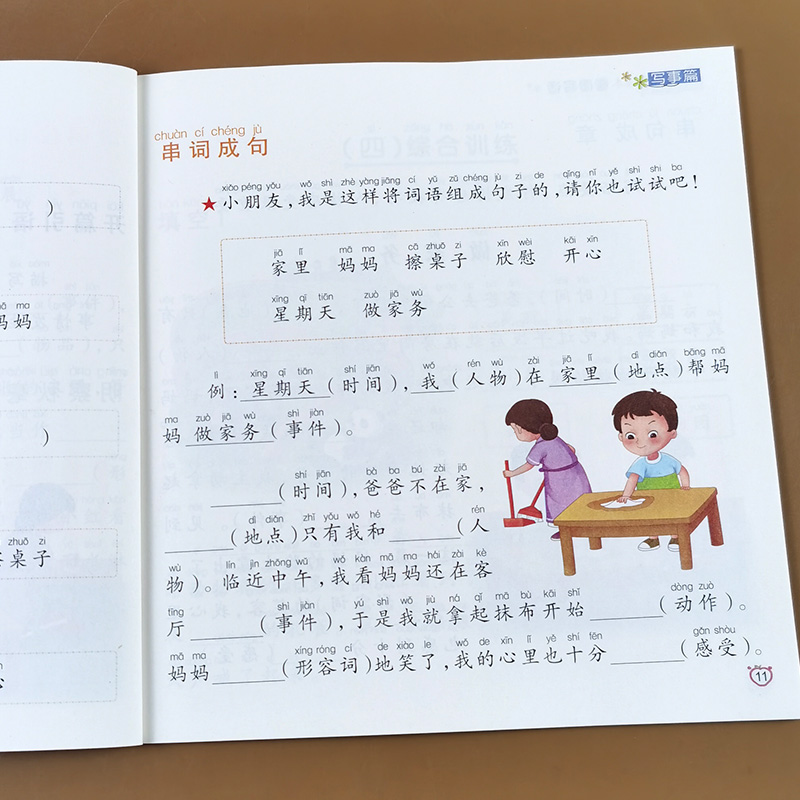 写事篇
chuàn cí chéng jù
串词成句
xiǎo péng yǒu wǒ shì zhè yàng jiāng cí yǔ zǔ chéng jù zi de qǐng nǐ yě shì shi ba
★小朋友,我是这样将词语组成句子的,请你也试试吧!
jiā lǐ mā ma cā zhuō zi xīn wèi kāi xīn
家里 妈妈 擦桌子 欣慰 开心
xīng qī tiān zuò jiā wù
星期天 做家务
lì xīng qī tiān shí jiān wǒ rén wù zài jiā lǐ dì diǎn bāng mā
例:星期天(时间),我(人物)在 家里(地点)帮妈
ma zuò jiā wù shì jiàn
妈 做家务(事件)。
shí jiān bà ba bú zài jiā
______(时间),爸爸不在家,
dì diǎn zhǐ yǒu wǒ hé rén
______(地点)只有我和______(人
wù lín jìn zhōng wǔ wǒ kàn mā ma hái zài kè
物)。临近中午,我看妈妈还在客
tīng shì jiàn yú shì wǒ jiù ná qǐ mā bù kāi shǐ dòng zuò
厅______(事件),于是我就拿起抹布开始______(动作)。
mā ma xíng róng cí de xiào le wǒ de xīn lǐ yě shí fēn gǎn shòu
妈妈______(形容词)地笑了,我的心里也十分______(感受)。
11
)
mā ma
妈妈
)
zhuō zi
桌子